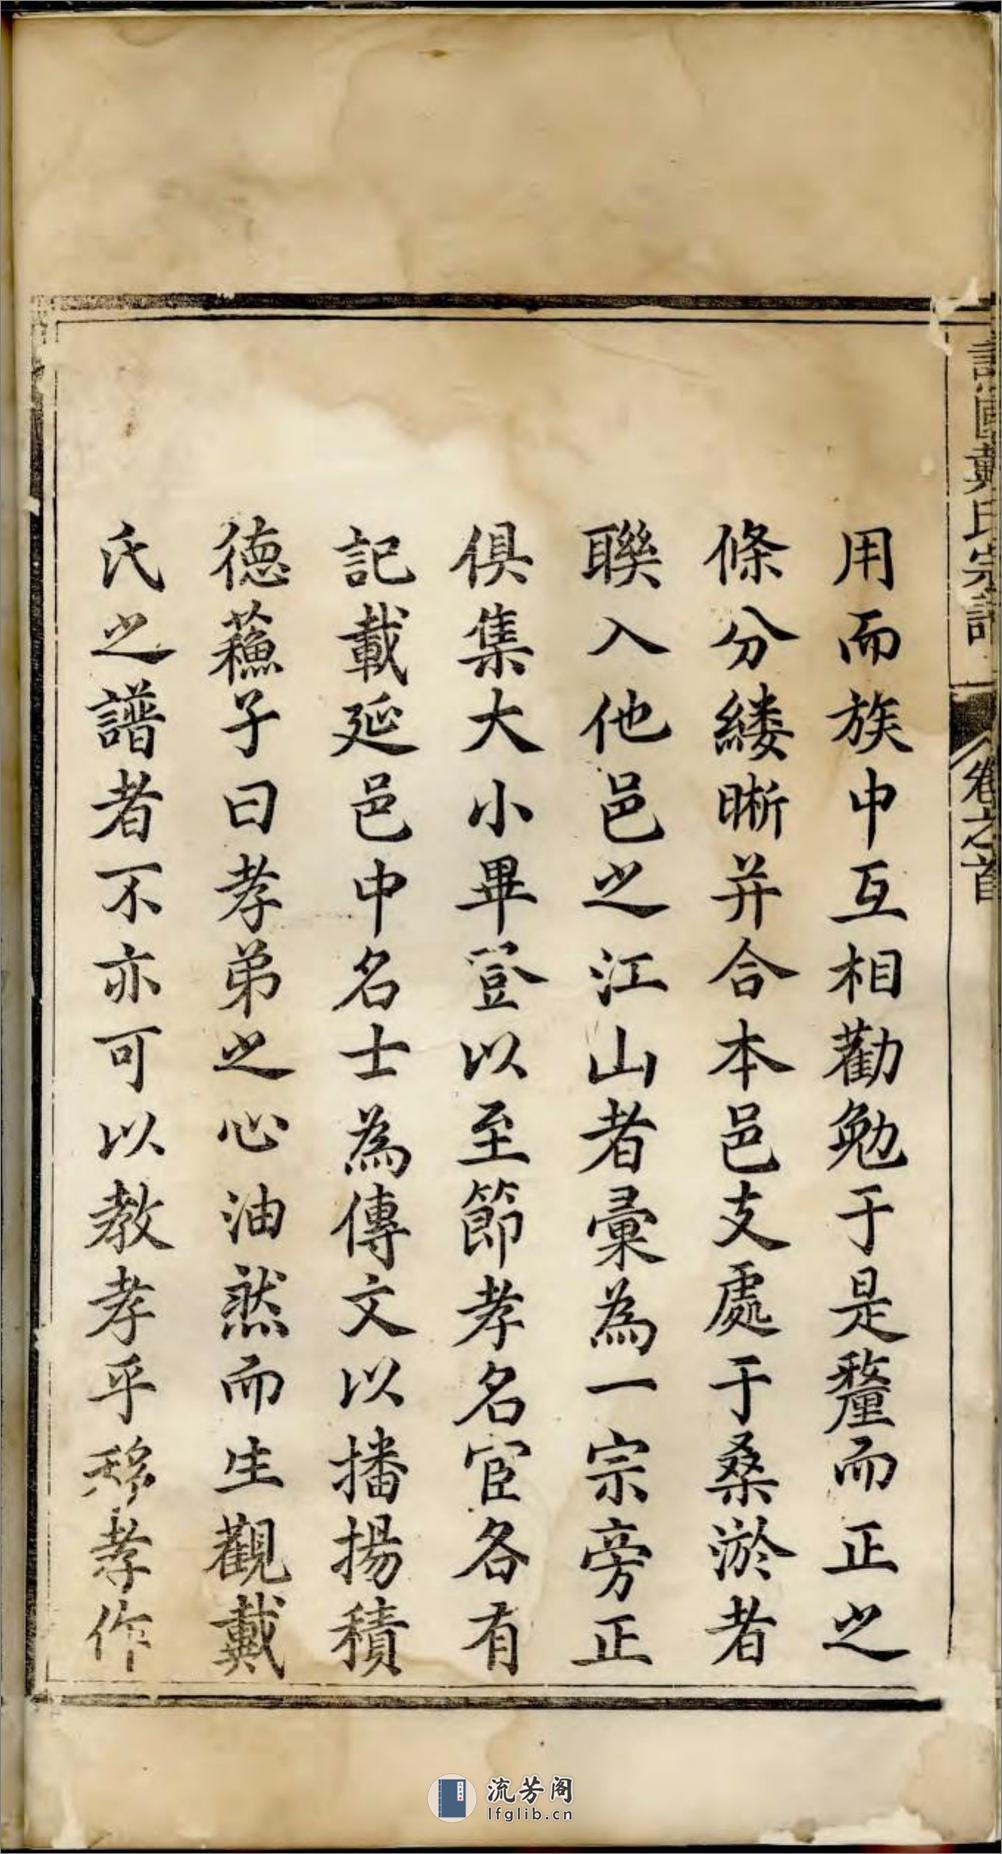 譙國戴氏宗譜
卷之首
用而族中互相勸勉于是釐而正之
條分縷晰并合本邑支處于桑淤者
聯入他邑之江山者彙為一宗旁正
俱集大小畢登以至節孝名宦各有
記載延邑中名士為傳文以播揚積
德蘓子曰孝弟之心油然而生觀戴
氏之譜者不亦可以教孝乎移孝作
流芳阁
lfglib.cn